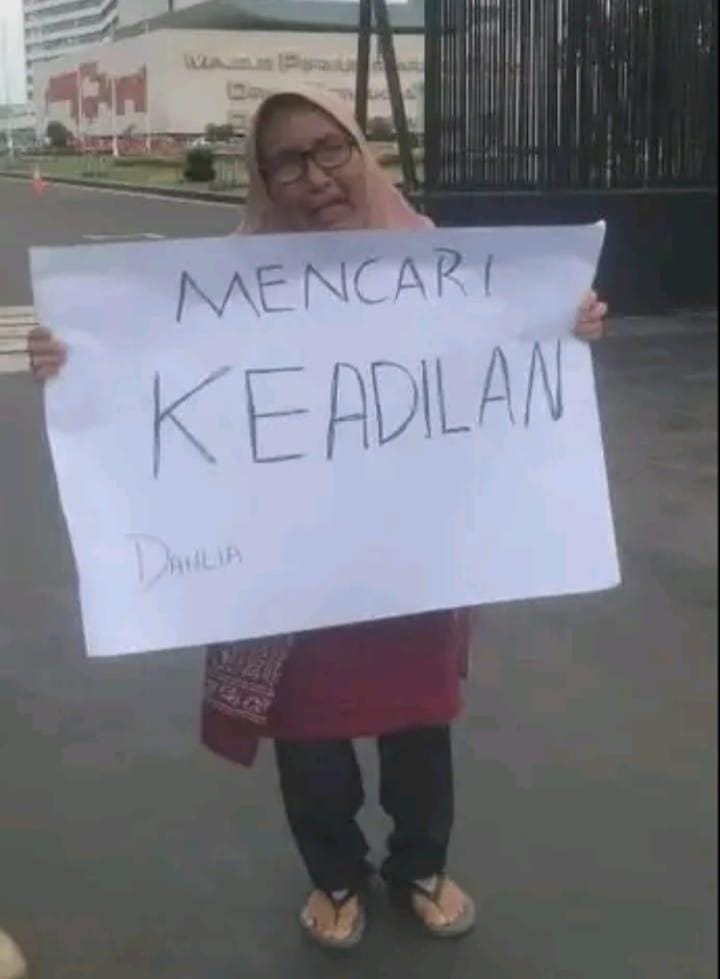 MENCARI
KEADILAN
DAHLIA